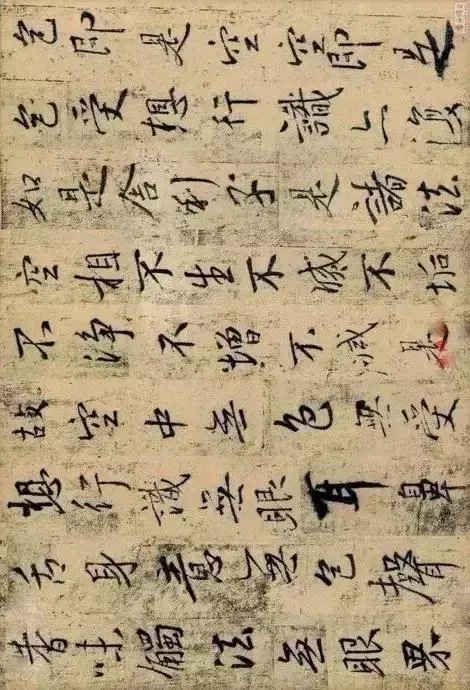 色即是空空即是
色受想行識亦復
如是舍利子是諸法
空相不生不滅不垢
不淨不增不減是
故空中无色無受
想行識無眼耳鼻
舌身意无色聲
香味觸法无眼界